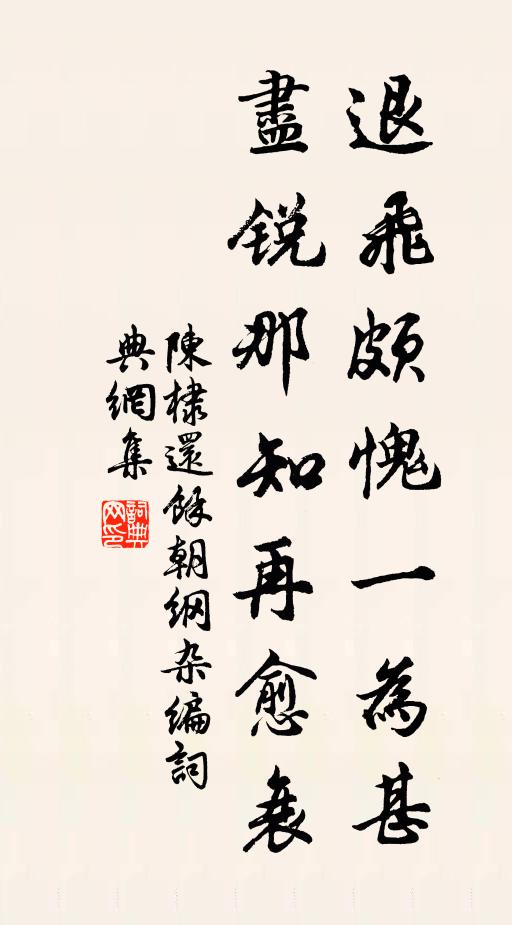 退飛頗愧一為甚
盡銳那知再愈衰
陳棣還餘朝纲杂編詞
典網集
詞典网印